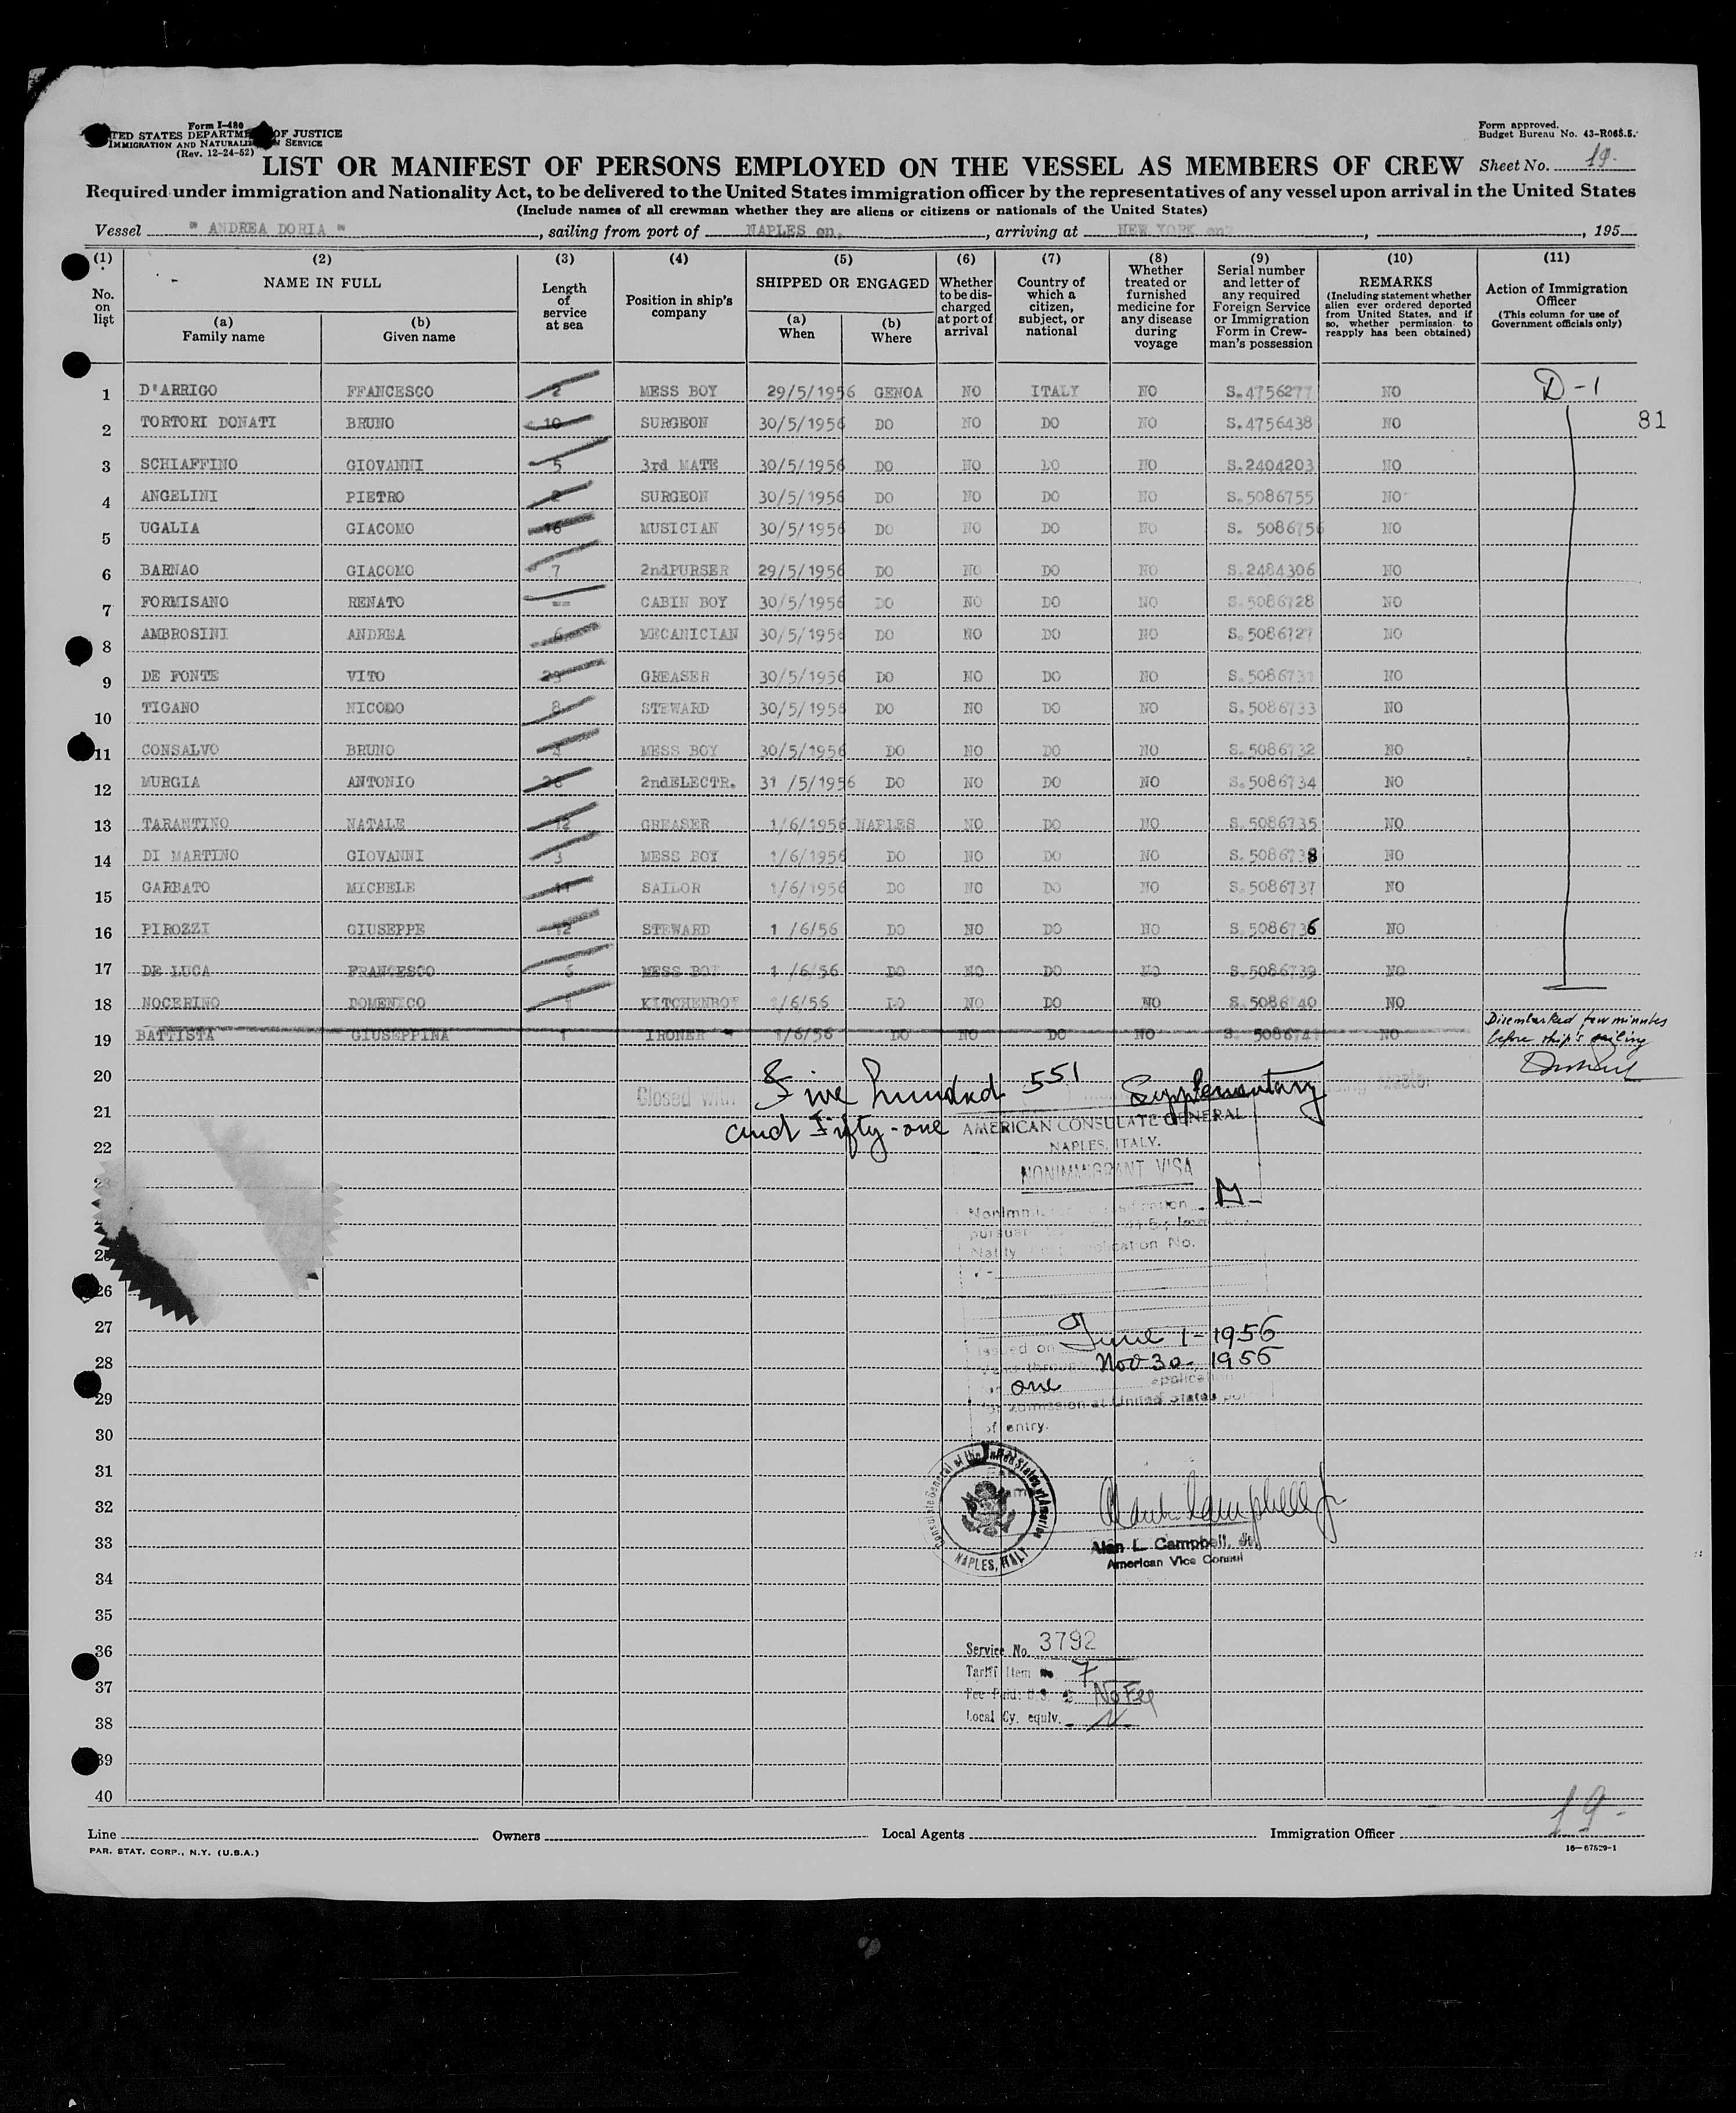 Form I-480
UNITED STATES DEPARTMENT OF JUSTICE
IMMIGRATION AND NATURALIZATION SERVICE
(Rev. 12-24-52)
Form approved.
Budget Bureau No. 43-R068.5.
LIST OR MANIFEST OF PERSONS EMPLOYED ON THE VESSEL AS MEMBERS OF CREW Sheet No. 19.
Required under immigration and Nationality Act, to be delivered to the United States immigration officer by the representatives of any vessel upon arrival in the United States
(Include names of all crewman whether they are aliens or citizens or nationals of the United States)
Vessel " ANDREA DORIA ", sailing from port of NAPLES on, arriving at NEW YORK on, , 195
(1) No. on list (2) NAME IN FULL (a) Family name (b) Given name (3) Length of service at sea (4) Position in ship's company (5) SHIPPED OR ENGAGED (a) When (b) Where (6) Whether to be discharged at port of arrival (7) Country of which a citizen, subject, or national (8) Whether treated or furnished medicine for any disease during voyage (9) Serial number and letter of any required Foreign Service or Immigration Form in Crewman's possession (10) REMARKS (Including statement whether alien ever ordered deported from United States, and if so, whether permission to reapply has been obtained) (11) Action of Immigration Officer (This column for use of Government officials only)
1 D'ARRIGO FFANCESCO 2 MESS BOY 29/5/1956 GENOA NO ITALY NO S.4756277 NO D-1
81
2 TORTORI DONATI BRUNO 10 SURGEON 30/5/1956 DO NO DO NO S.4756438 NO
3 SCHIAFFINO GIOVANNI 5 3rd MATE 30/5/1956 DO NO DO NO S.2404203 NO
4 ANGELINI PIETRO 2 SURGEON 30/5/1956 DO NO DO NO S.5086755 NO
5 UGALIA GIACOMO 16 MUSICIAN 30/5/1956 DO NO DO NO S. 5086756 NO
6 BARNAO GIACOMO 7 2ndPURSER 29/5/1956 DO NO DO NO S.2484306 NO
7 FORMISANO RENATO -- CABIN BOY 30/5/1956 DO NO DO NO S.5086728 NO
8 AMBROSINI ANDREA 6 MECANICIAN 30/5/1956 DO NO DO NO S.5086727 NO
9 DE FONTE VITO 29 GREASER 30/5/1956 DO NO DO NO S.5086731 NO
10 TIGANO NICODO 8 STEWARD 30/5/1956 DO NO DO NO S.5086733 NO
11 CONSALVO BRUNO 4 MESS BOY 30/5/1956 DO NO DO NO S.5086732 NO
12 MURGIA ANTONIO 26 2ndELECTR. 31 /5/1956 DO NO DO NO S.5086734 NO
13 TARANTINO NATALE 12 GREASER 1/6/1956 NAPLES NO DO NO S.5086735 NO
14 DI MARTINO GIOVANNI 3 MESS BOY 1/6/1956 DO NO DO NO S.5086738 NO
15 GARBATO MICHELE 11 SAILOR 1/6/1956 DO NO DO NO S.5086737 NO
16 PIROZZI GIUSEPPE 12 STEWARD 1 /6/56 DO NO DO NO S.5086736 NO
17 DE LUCA FRANCESCO 6 MESS BOY 1 /6/56 DO NO DO NO S.5086739 NO
18 NOCERINO DOMENICO 1 KITCHENBOY 1/6/56 DO NO DO NO S.5086740 NO
19 BATTISTA GIUSEPPINA 1 IRONER 1/6/56 DO NO DO NO S. 508674 NO Disembarked few minutes
before ship's sailing
20 Closed with Five hundred 551 Supplementary
21 and Fifty-one AMERICAN CONSULATE GENERAL
22 NAPLES, ITALY.
NONIMMIGRANT VISA
23
24
25
Application No.
26
27 June 1-1956
Issued on
28 Nov 30. 1956
29 one application
for admission at United States
30 of entry.
31
32
Consulate General of the United States of America
NAPLES, ITALY
33 Alan L. Campbell, Jr.
American Vice Consul
34
35
36 Service No. 3792
Tariff Item 7
37 Fee Paid: U.S. No Fee
Local Cy. equiv.
38
39
40
19.
Line Owners Local Agents Immigration Officer
PAR. STAT. CORP., N.Y. (U.S.A.)
16—67529-1